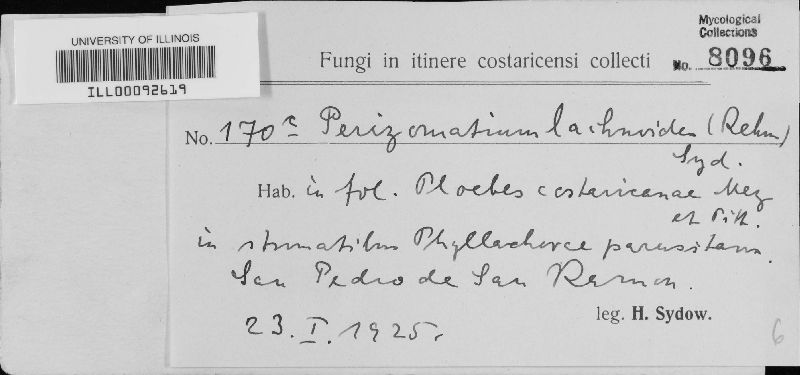 UNIVERSITY OF ILLINOIS
ILL00092619
Mycological
Collections
No. 8096
Fungi in itinere costaricensi collecti
No. 170c Perizomatium lachnoides (Rehm)
Syd.
Hab. in fol. Phoebes costaricanae Mez
et Pitt.
in stromatibus Phyllachorae parasitans.
San Pedro de San Ramon.
23. I. 1925.
leg. H. Sydow.
6